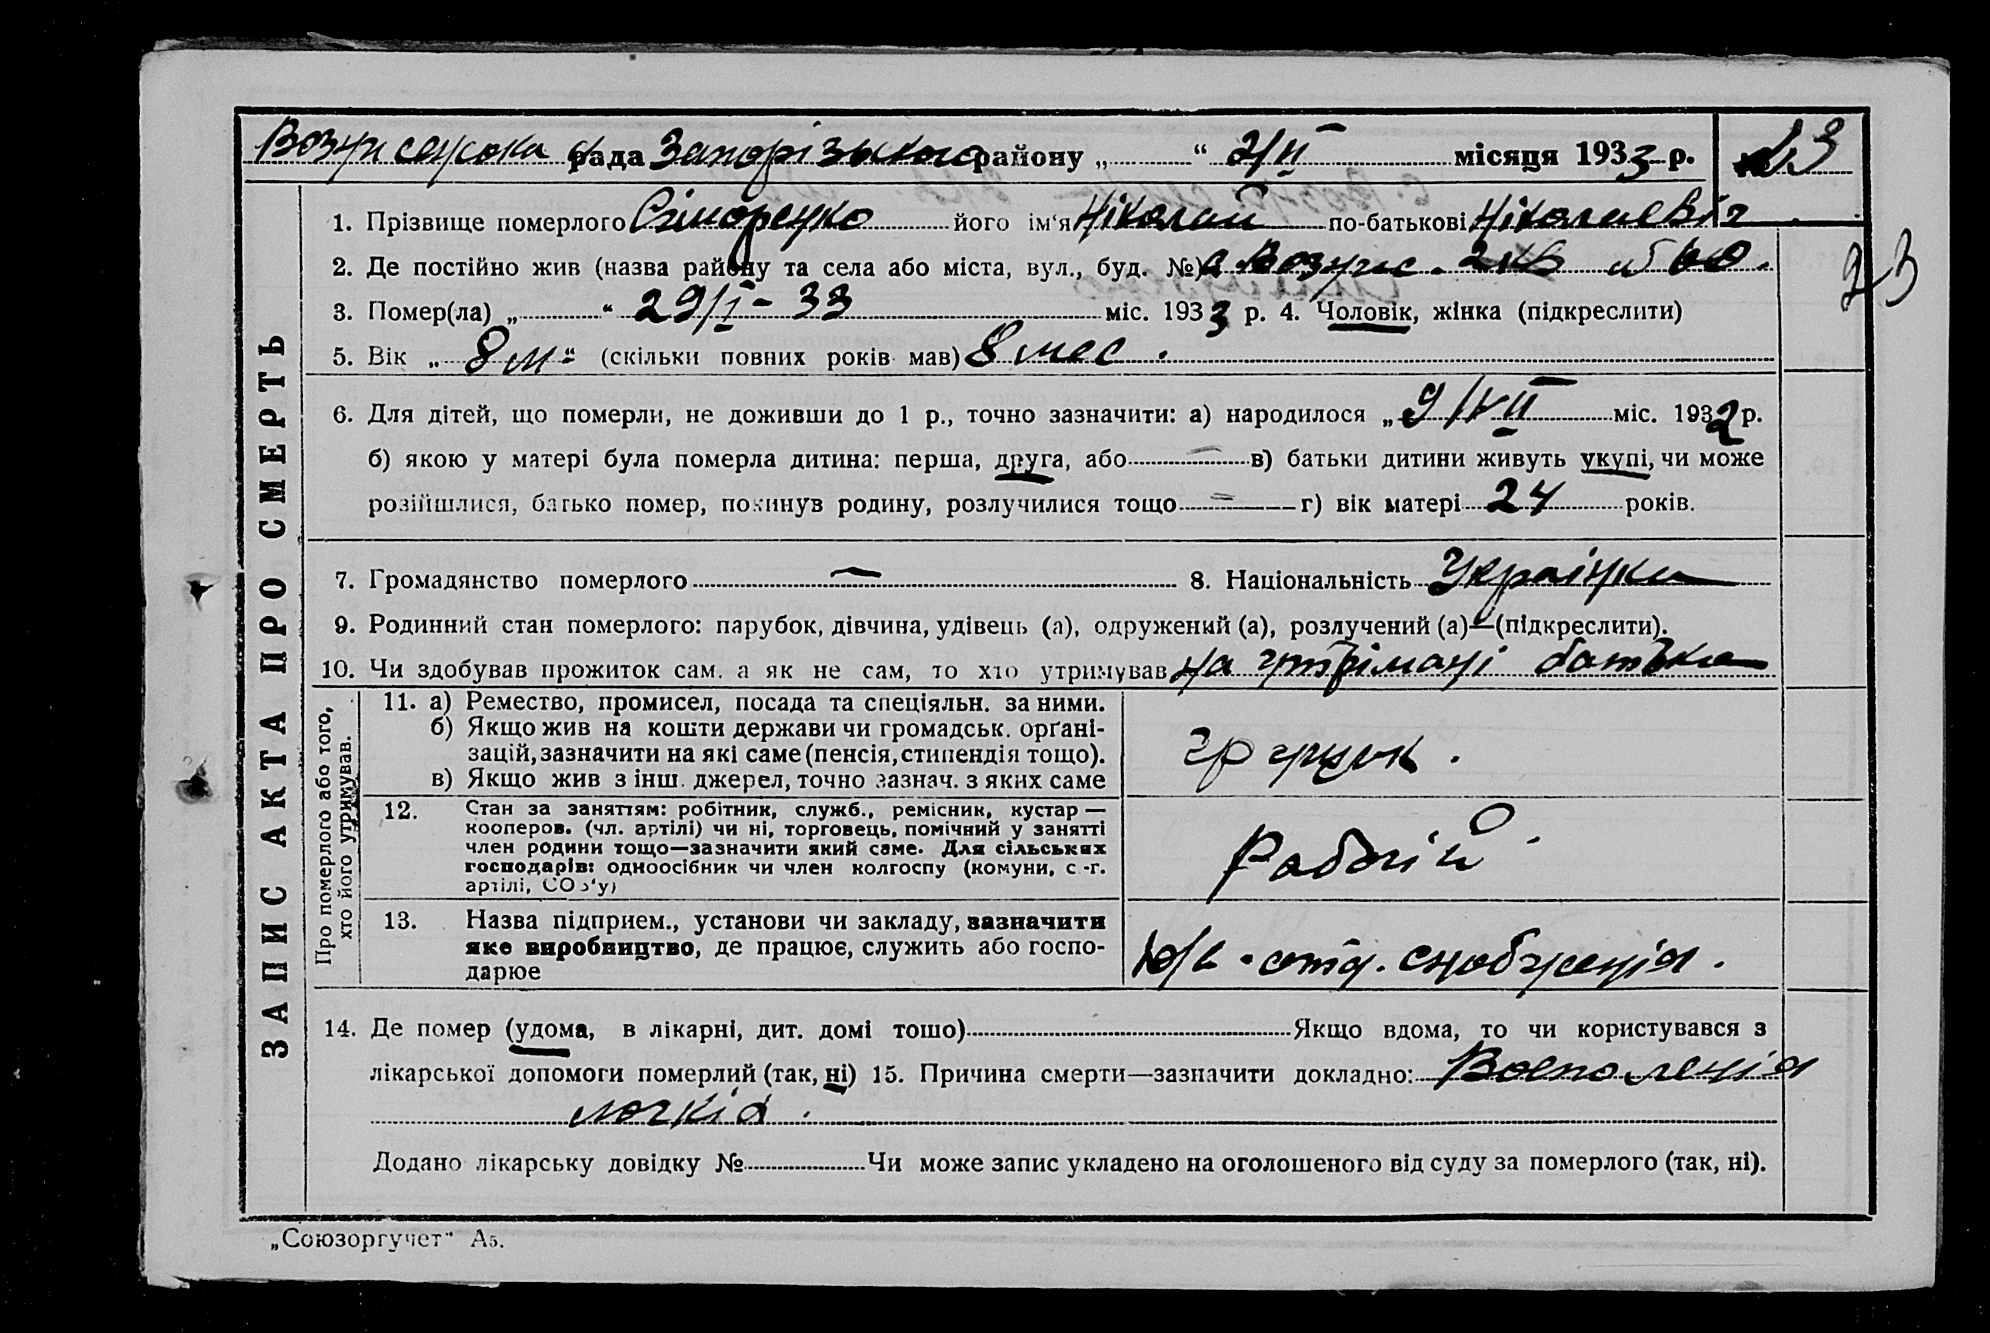 рада Запорізького району „ “ 2/II місяця 1933 р. № 3
ЗАПИС АКТА ПРО СМЕРТЬ
1. Прізвище померлого його ім‘я Ніколай по-батькові Ніколаевіч
2. Де постійно жив (назва району та села або міста, вул., буд. №)
3. Помер(ла) „ “ 29/I - 33 міс. 1933 р. 4. Чоловік, жінка (підкреслити)
23
5. Вік „ 8 м “ (скільки повних років мав) 8 мес.
6. Для дітей, що померли, не доживши до 1 р., точно зазначити: а) народилося „ міс. 1932 р.
б) якою у матері була померла дитина: перша, друга, або в) батьки дитини живуть укупі, чи може
розійшлися, батько помер, покинув родину, розлучилися тощо г) вік матері 24 років.
7. Громадянство померлого — 8. Національність Українка
9. Родинний стан померлого: парубок, дівчина, удівець (а), одружений (а), розлучений (а)—(підкреслити).
10. Чи здобував прожиток сам, а як не сам, то хто утримував на утрімані батька
Про померлого або того, хто його утримував.
11. а) Ремество, промисел, посада та спеціяльн. за ними.
б) Якщо жив на кошти держави чи громадськ. орґані-
зацій, зазначити на які саме (пенсія, стипендія тощо).
в) Якщо жив з інш. джерел, точно зазнач. з яких саме
грузчік.
12. Стан за заняттям: робітник, служб., ремісник, кустар —
кооперов. (чл. артілі) чи ні, торговець, помічний у занятті
член родини тощо—зазначити який саме. Для сільських
господарів: одноосібник чи член колгоспу (комуни, с.-г.
артілі, СОЗ‘у)
Рабочій.
13. Назва підприєм., установи чи закладу, зазначити
яке виробництво, де працює, служить або госпо-
дарює
отд. снабженія.
14. Де помер (удома, в лікарні, дит. домі тощо) Якщо вдома, то чи користувався з
лікарської допомоги померлий (так, ні) 15. Причина смерти—зазначити докладно: Воспоменія
логкіх.
Додано лікарську довідку № Чи може запис укладено на оголошеного від суду за померлого (так, ні).
„Союзоргучет“ А5.